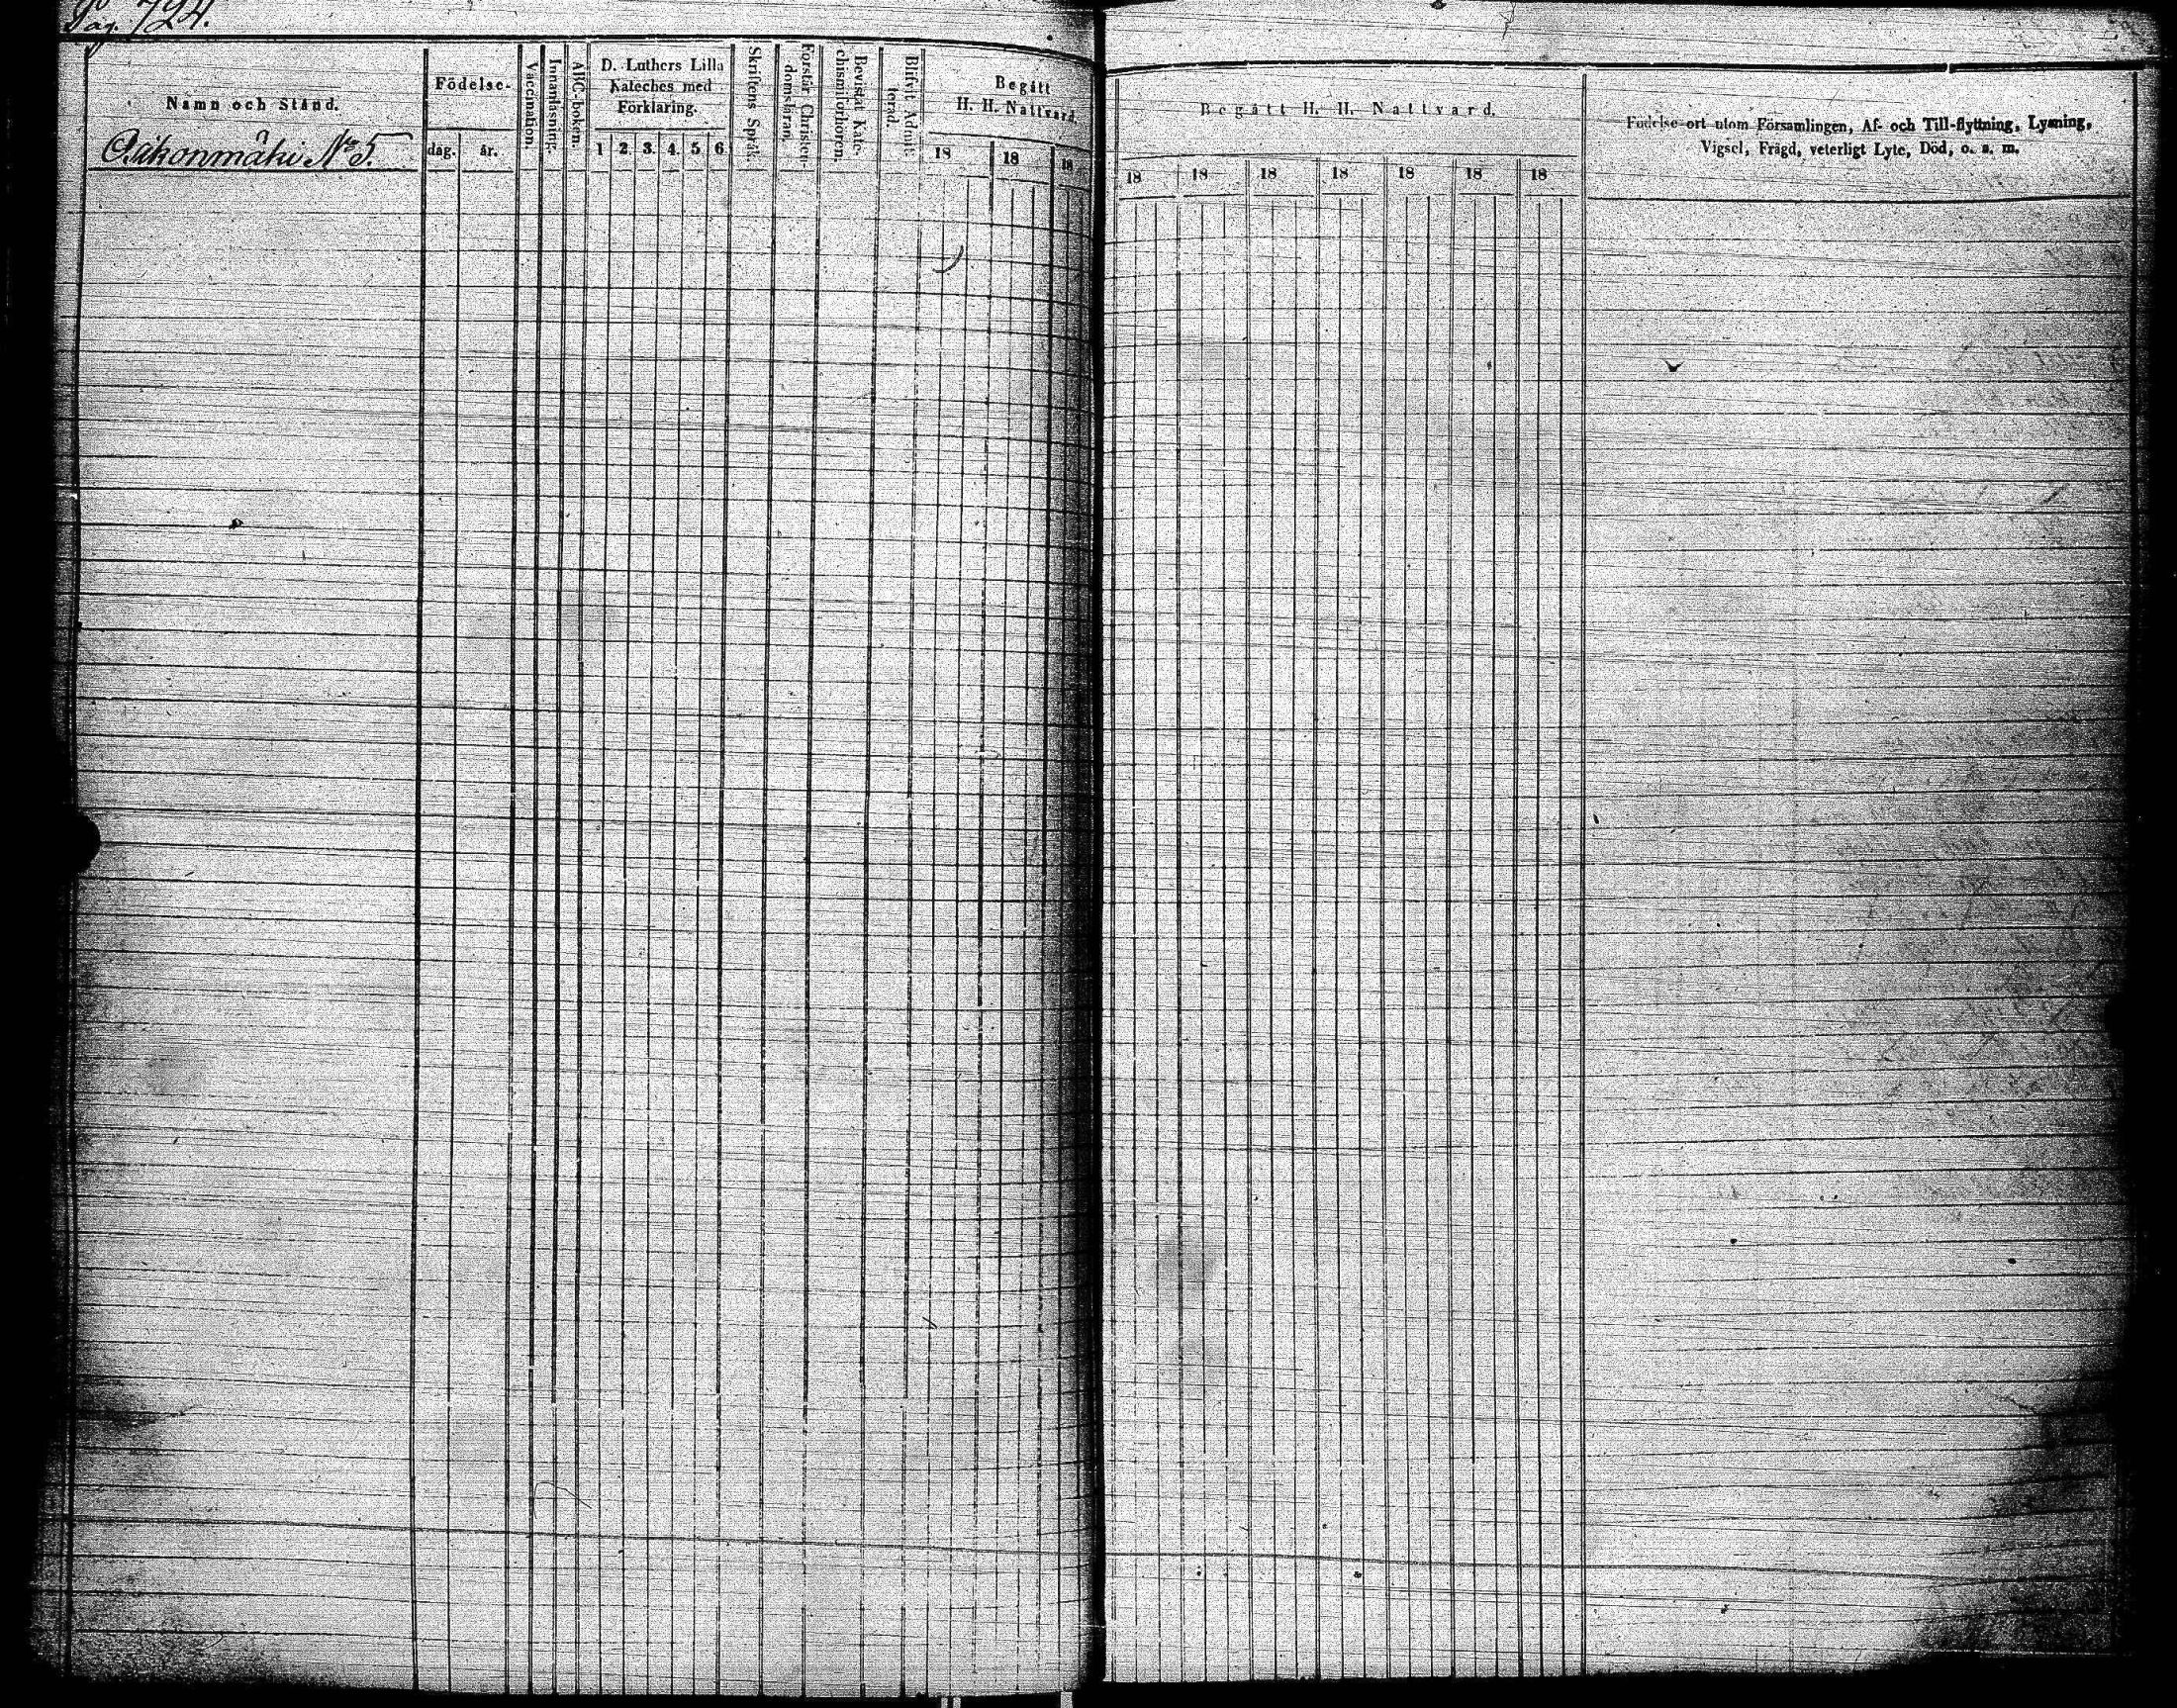 Pag. 724.
Namn och Stånd.
Födelse-
dag. år.
Vaccination.
Innanläsning.
ABC-boken.
D. Luthers Lilla
Kateches med
Förklaring.
1 2. 3. 4. 5 6
Skriftens Språk.
Förstår Christen-
domsläran.
Bevistat Kate-
chismiförhören.
Blifvit Admit-
terad.
Begått
H. H. Nattvard.
18 18 18
N:o 5.
Begått H. H. Nattvard.
18 18 18 18 18 18 18
Födelse-ort utom Församlingen, Af- och Till-flyttning, Lysning,
Vigsel, Frägd, veterligt Lyte, Död, o. s. m.